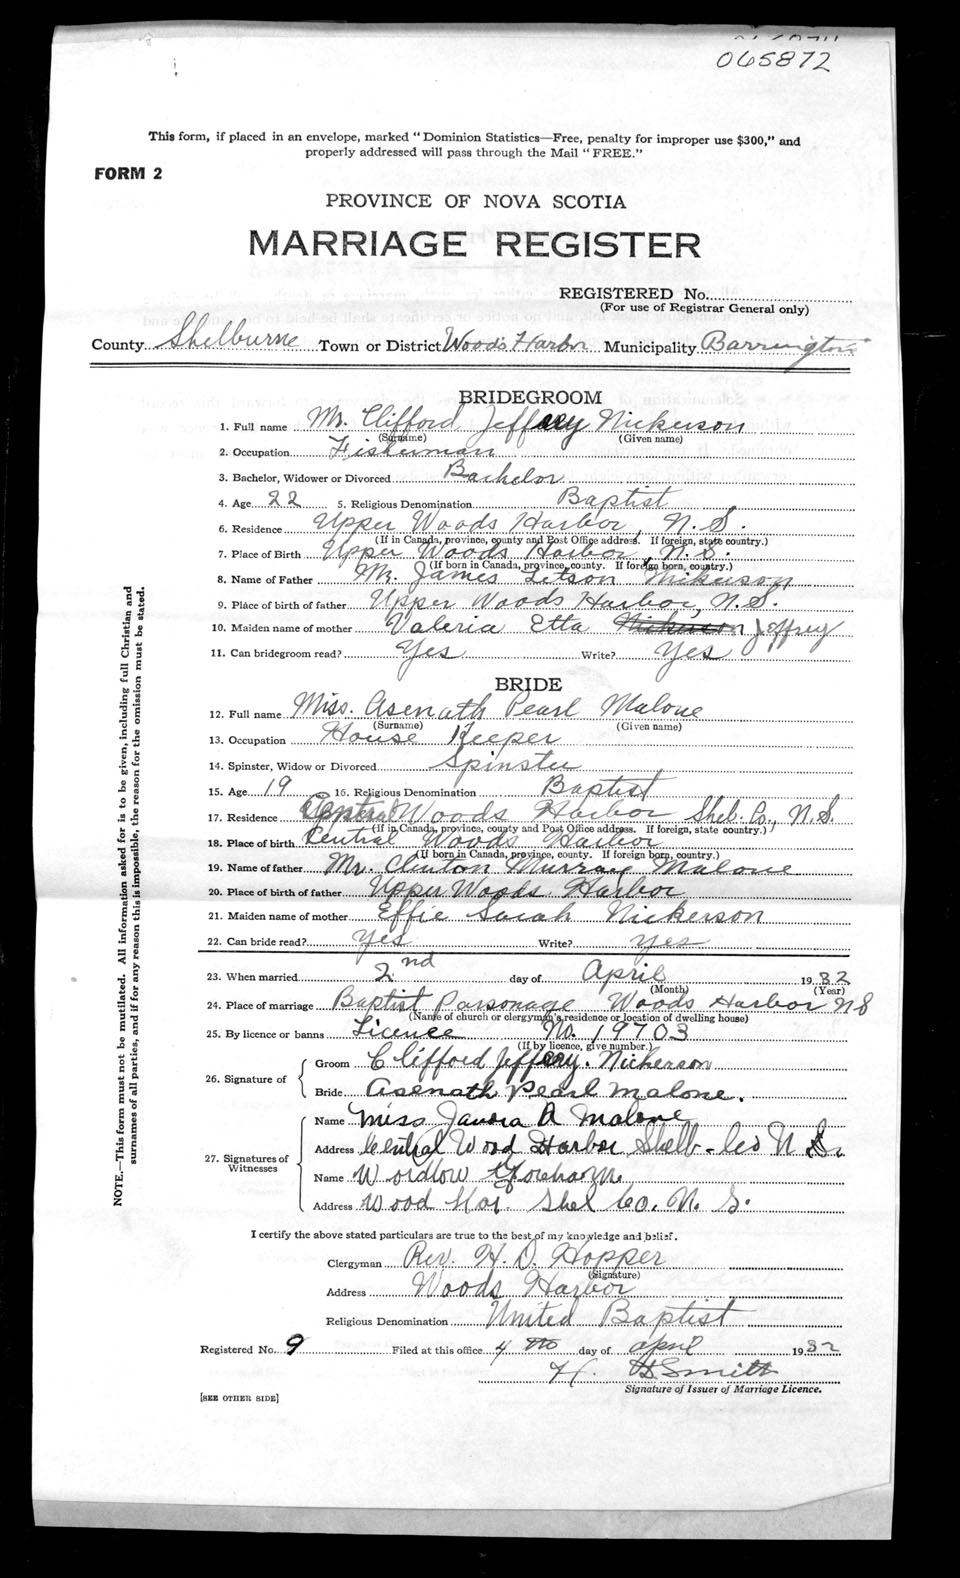 065872
This form, if placed in an envelope, marked "Dominion Statistics—Free, penalty for improper use $300," and
properly addressed will pass through the Mail "FREE."
FORM 2
PROVINCE OF NOVA SCOTIA
MARRIAGE REGISTER
REGISTERED No.
(For use of Registrar General only)
County Shelburne Town or District Woods Harbor Municipality Barrington
BRIDEGROOM
1. Full name Mr. Clifford Jeffery Nickerson
(Surname) (Given name)
2. Occupation Fisherman
3. Bachelor, Widower or Divorced Bachelor
4. Age 22 5. Religious Denomination Baptist
6. Residence Upper Woods Harbor, N.S.
(If in Canada, province, county and Post Office address. If foreign, state country.)
7. Place of Birth Upper Woods Harbor, N.S.
(If born in Canada, province, county. If foreign born, country.)
8. Name of Father Mr. James Letson Nickerson
9. Place of birth of father Upper Woods Harbor, N.S.
10. Maiden name of mother Valeria Etta Nickerson Jeffrey
11. Can bridegroom read? Yes Write? Yes
BRIDE
12. Full name Miss. Asenath Pearl Malone
(Surname) (Given name)
13. Occupation House Keeper
14. Spinster, Widow or Divorced Spinster
15. Age 19 16. Religious Denomination Baptist
17. Residence Central Woods Harbor Shel. Co., N.S.
(If in Canada, province, county and Post Office address. If foreign, state country.)
18. Place of birth Central Woods Harbor
(If born in Canada, province, county. If foreign born, country.)
19. Name of father Mr. Clinton Murray Malone
20. Place of birth of father Upper Woods Harbor
21. Maiden name of mother Effie Sarah Nickerson
22. Can bride read? Yes Write? Yes
23. When married 2nd day of April 1932
(Month) (Year)
24. Place of marriage Baptist Parsonage Woods Harbor NS
(Name of church or clergyman's residence or location of dwelling house)
25. By licence or banns Licence No. 19703
(If by licence, give number.)
26. Signature of
Groom Clifford Jeffery. Nickerson
Bride Asenath Pearl Malone.
27. Signatures of Witnesses
Name Miss A Malone
Address Central Wood Harbor Shelb-Co N S.
Name
Address Wood Har. Shel Co. N. S.
I certify the above stated particulars are true to the best of my knowledge and belief.
Clergyman Rev. H. D. Hopper
(Signature)
Address Woods Harbor
Religious Denomination United Baptist
Registered No. 9 Filed at this office 4 th day of April 1932
H. Smith
Signature of Issuer of Marriage Licence.
[SEE OTHER SIDE]
NOTE.—This form must not be mutilated. All information asked for is to be given, including full Christian and
surnames of all parties, and if for any reason this is impossible, the reason for the omission must be stated.